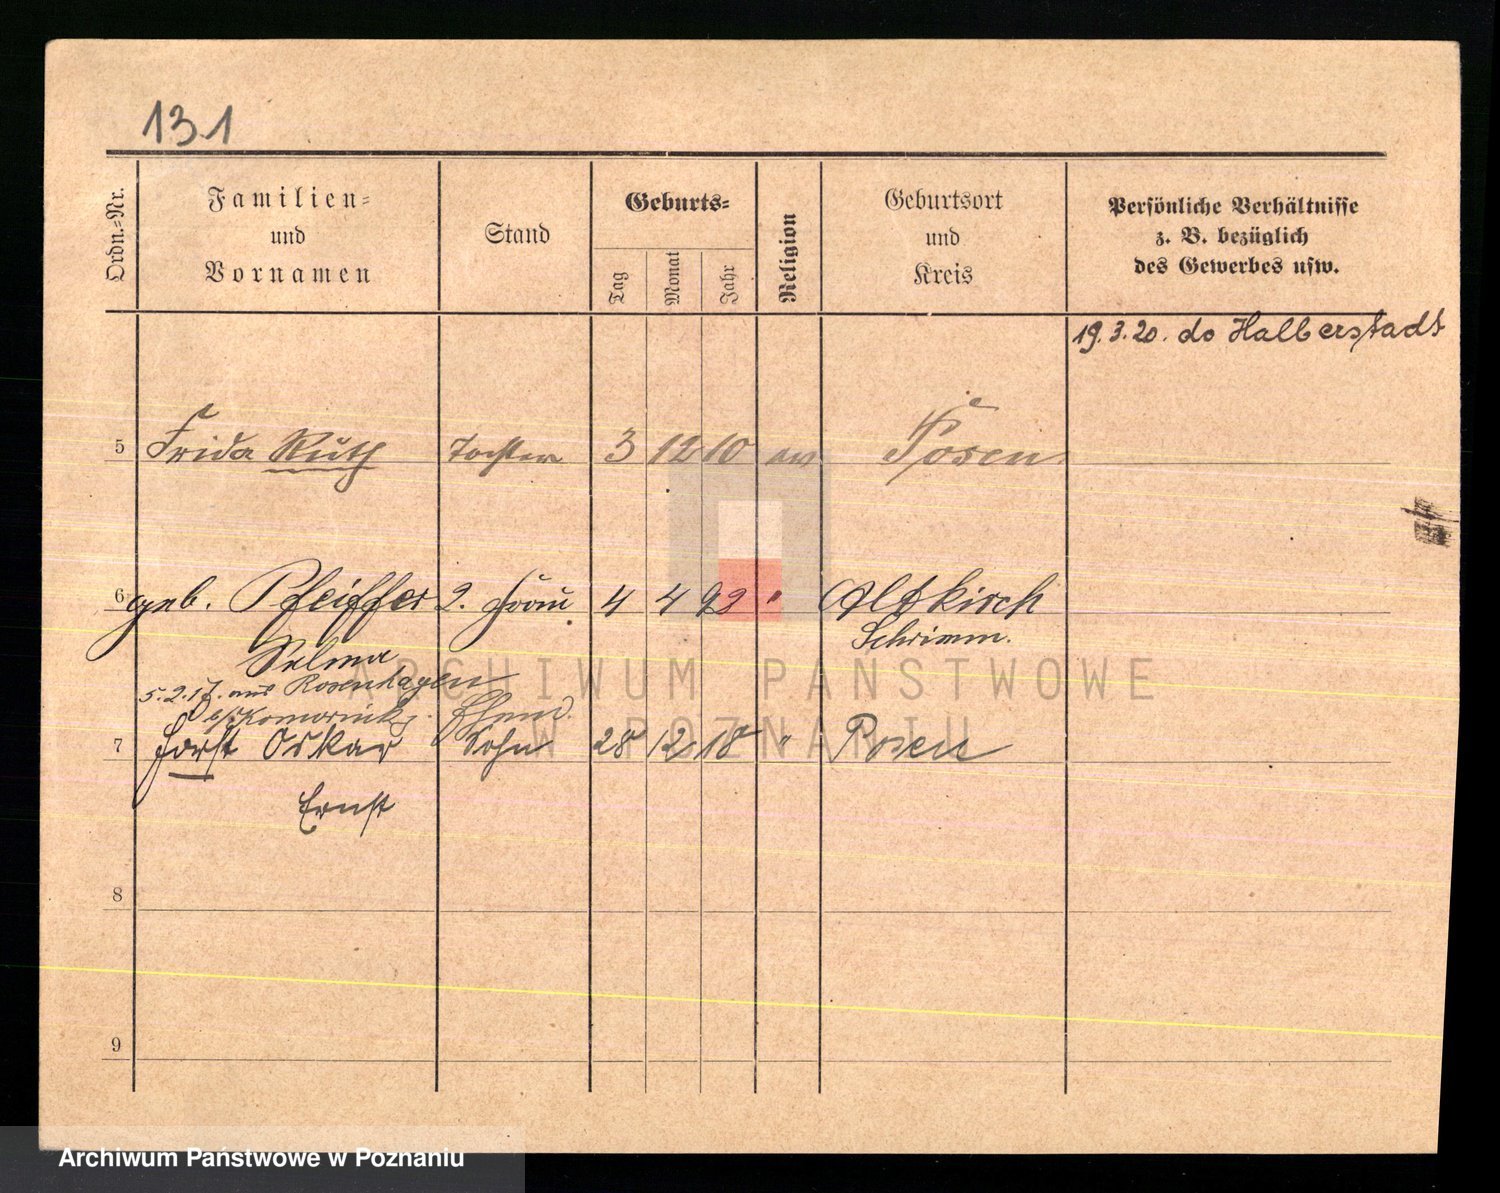 131
Ordn.=Nr.
Familien=
und
Vornamen
Stand
Geburts=
Tag
Monat
Jahr
Religion
Geburtsort
und
Kreis
Persönliche Verhältnisse
z. B. bezüglich
des Gewerbes usw.
19.3.20. do Halberstadt
5 Frida Ruth Tochter 3 12 10 Posen
6 geb. Pfeiffer 2. Frau 4 4 92 " Altkirch
Selma Schrimm.
5.2.17. aus Rosenhagen
Komornik
7 Horst Oskar Sohn 28 12 18 " Posen
Ernst
8
9
ARCHIWUM PAŃSTWOWE
W POZNANIU
Archiwum Państwowe w Poznaniu